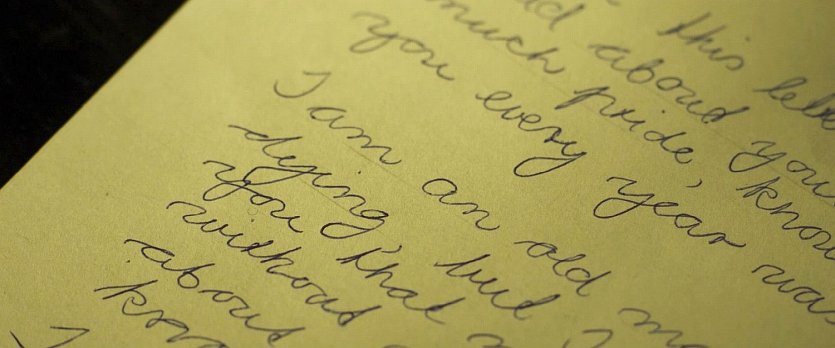 this
about you
much pride, know
you every year was
I am an old
dying, but
you that
without
about
I